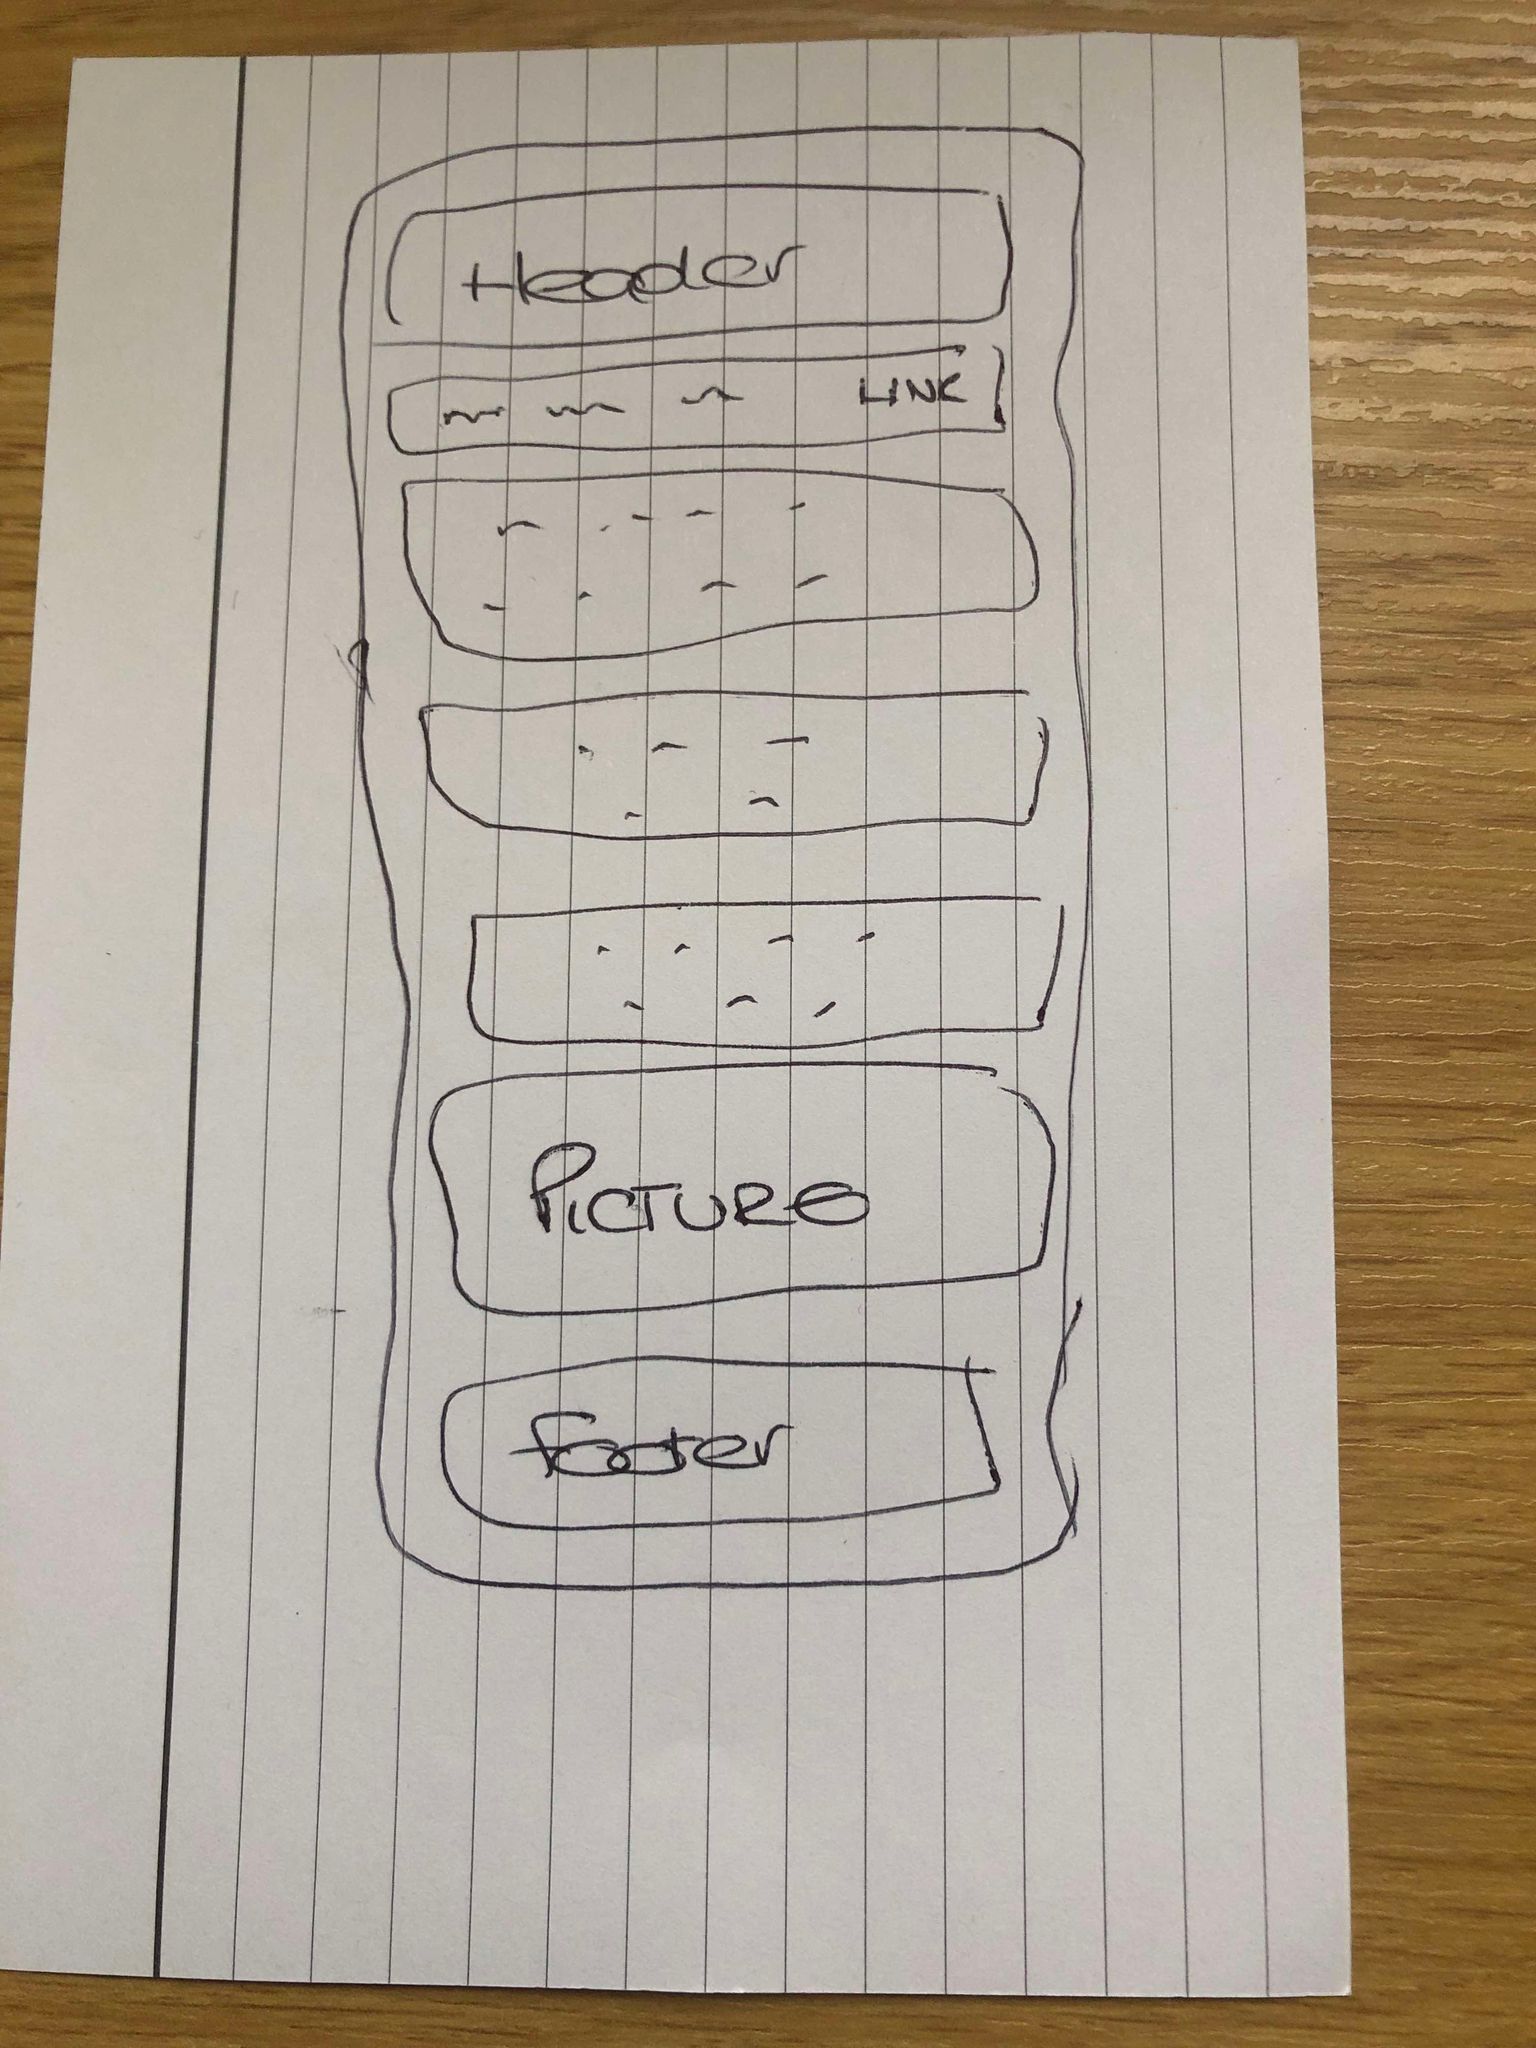 Header
LINK
PICTURE
footer